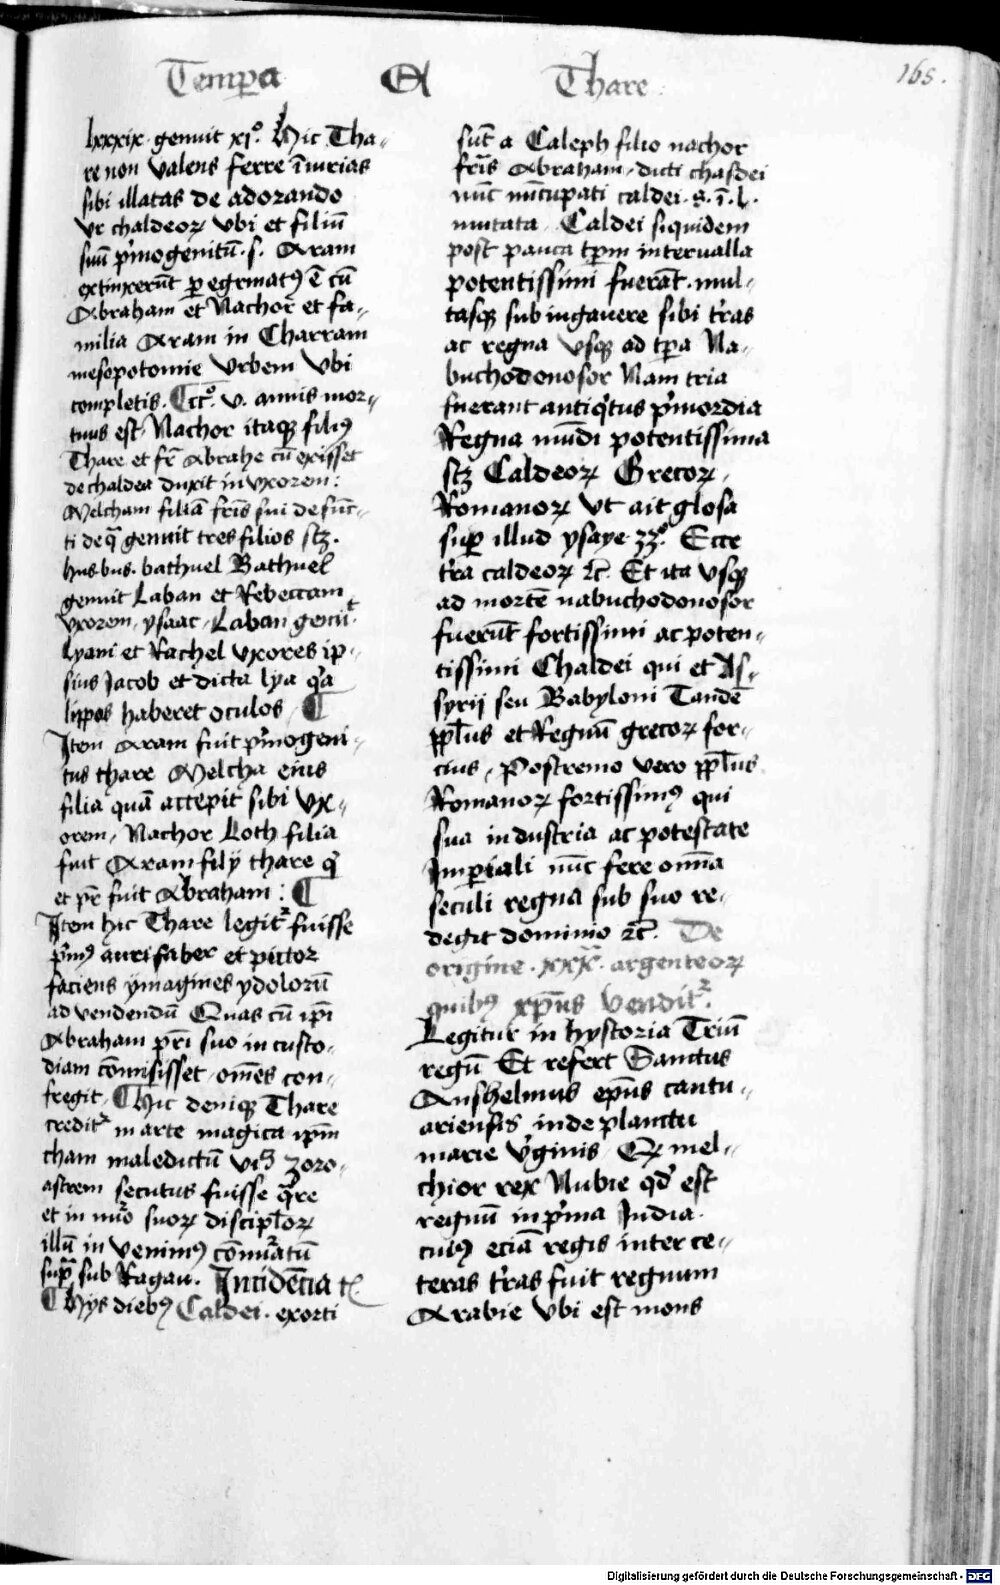 Tempꝑa A Thare 165.
lxxxix genuit xj°. Hic Tha-
re non valens ferre iniurias
sibi illatas de adorando
vr chaldeoꝝ vbi et filiū
suū pͥmogenitū .s. Aram
extinxerūt ꝑegrinatꝰ ē cū
Abraham et Nachor et fa-
milia Aram in Charram
mesopotomie vrbem vbi
completis. CCC°. v. annis mor-
tuus est. Nachor itaqꝫ filiꝰ
Thare et fr̄ Abrahe cū exisset
de chaldea duxit in vxorem:
Melcham filiā fr̄is sui defūc-
ti de qͣ genuit tres filios scꝫ.
hus. bus. bathuel Bathuel
genuit Laban et Rebeccam
vxorem. ysaac. Laban genuit.
Lyam et Rachel vxores ip-
sius Jacob et dicta lya qͥa
lippos haberet oculos. ¶
Item Aram fuit pͥmogeni-
tus thare Melcha eius
filia quā accepit sibi vx-
orem. Nachor Loth filia
fuit Aram filij thare qͥ
et pr̄ fuit Abraham: ¶
Item hic Thare legitᷣ fuisse
pͥmꝰ aurifaber et pictor
faciens ymagines ydolorū
ad vendendū Quas cū ipi
Abraham pr̄i suo in custo-
diam cōmisisset. om̄es con-
fregit. ¶ Hic deniqꝫ Thare
creditᷣ in arte magica ipm̄
cham maledictū vꝫ zoro-
astrem secutus fuisse qͣre
et in suoꝝ discipl̄oꝝ
illū in venimꝰ cōnūatū
supͣ sub Ragau. Incidēcia
¶ Hys diebꝰ Caldei. exorti
sūt a Caleph filio nachor
fr̄is Abraham. dicti chasdei
nūc nūcupati caldei .s. ī .l.
mutata. Caldei siquidem
post pauca tp̄m interualla
potentissimi fuerāt. mul-
tasqꝫ subiugauere sibi tr̄as
ac regna vsqꝫ ad tp̄a Na-
buchodonosor Nam tria
fuerant antiqͥtus pͥmordia
Regna mūdi potentissima
scꝫ Caldeoꝝ Grecoꝝ.
Romanoꝝ vt ait glosa
suꝑ illud ysaye. 23°. Ecce
tr̄a caldeoꝝ ⁊c̄. Et ita vsqꝫ
ad mortē nabuchodonosor
fuerūt fortissimi ac poten-
tissimi Chaldei qui et As-
syrij seu Babyloni Tandē
ppl̄us et Regnū grecoꝝ for-
cius. Postremo vero ppl̄us
Romanoꝝ fortissimꝰ qui
sua industria ac potestate
Imꝑiali nūc fere omīa
seculi regna sub suo re-
degit dominio ⁊c̄. De
origine. xxxͣ. argenteoꝝ
quibꝰ xp̄us venditᷣ.
Legitur in hystoria Triū
regū Et refert Sanctus
Anshelmus ep̄us cantu-
ariensis inde planctu
marie vͥginis Qꝫ mel-
chior rex Nubie qd̄ est
regnū in pͥma India.
cuiꝰ eciā regis inter ce-
teras tr̄as fuit regnum
Arabie vbi est mons
Digitalisierung gefördert durch die Deutsche Forschungsgemeinschaft - DFG